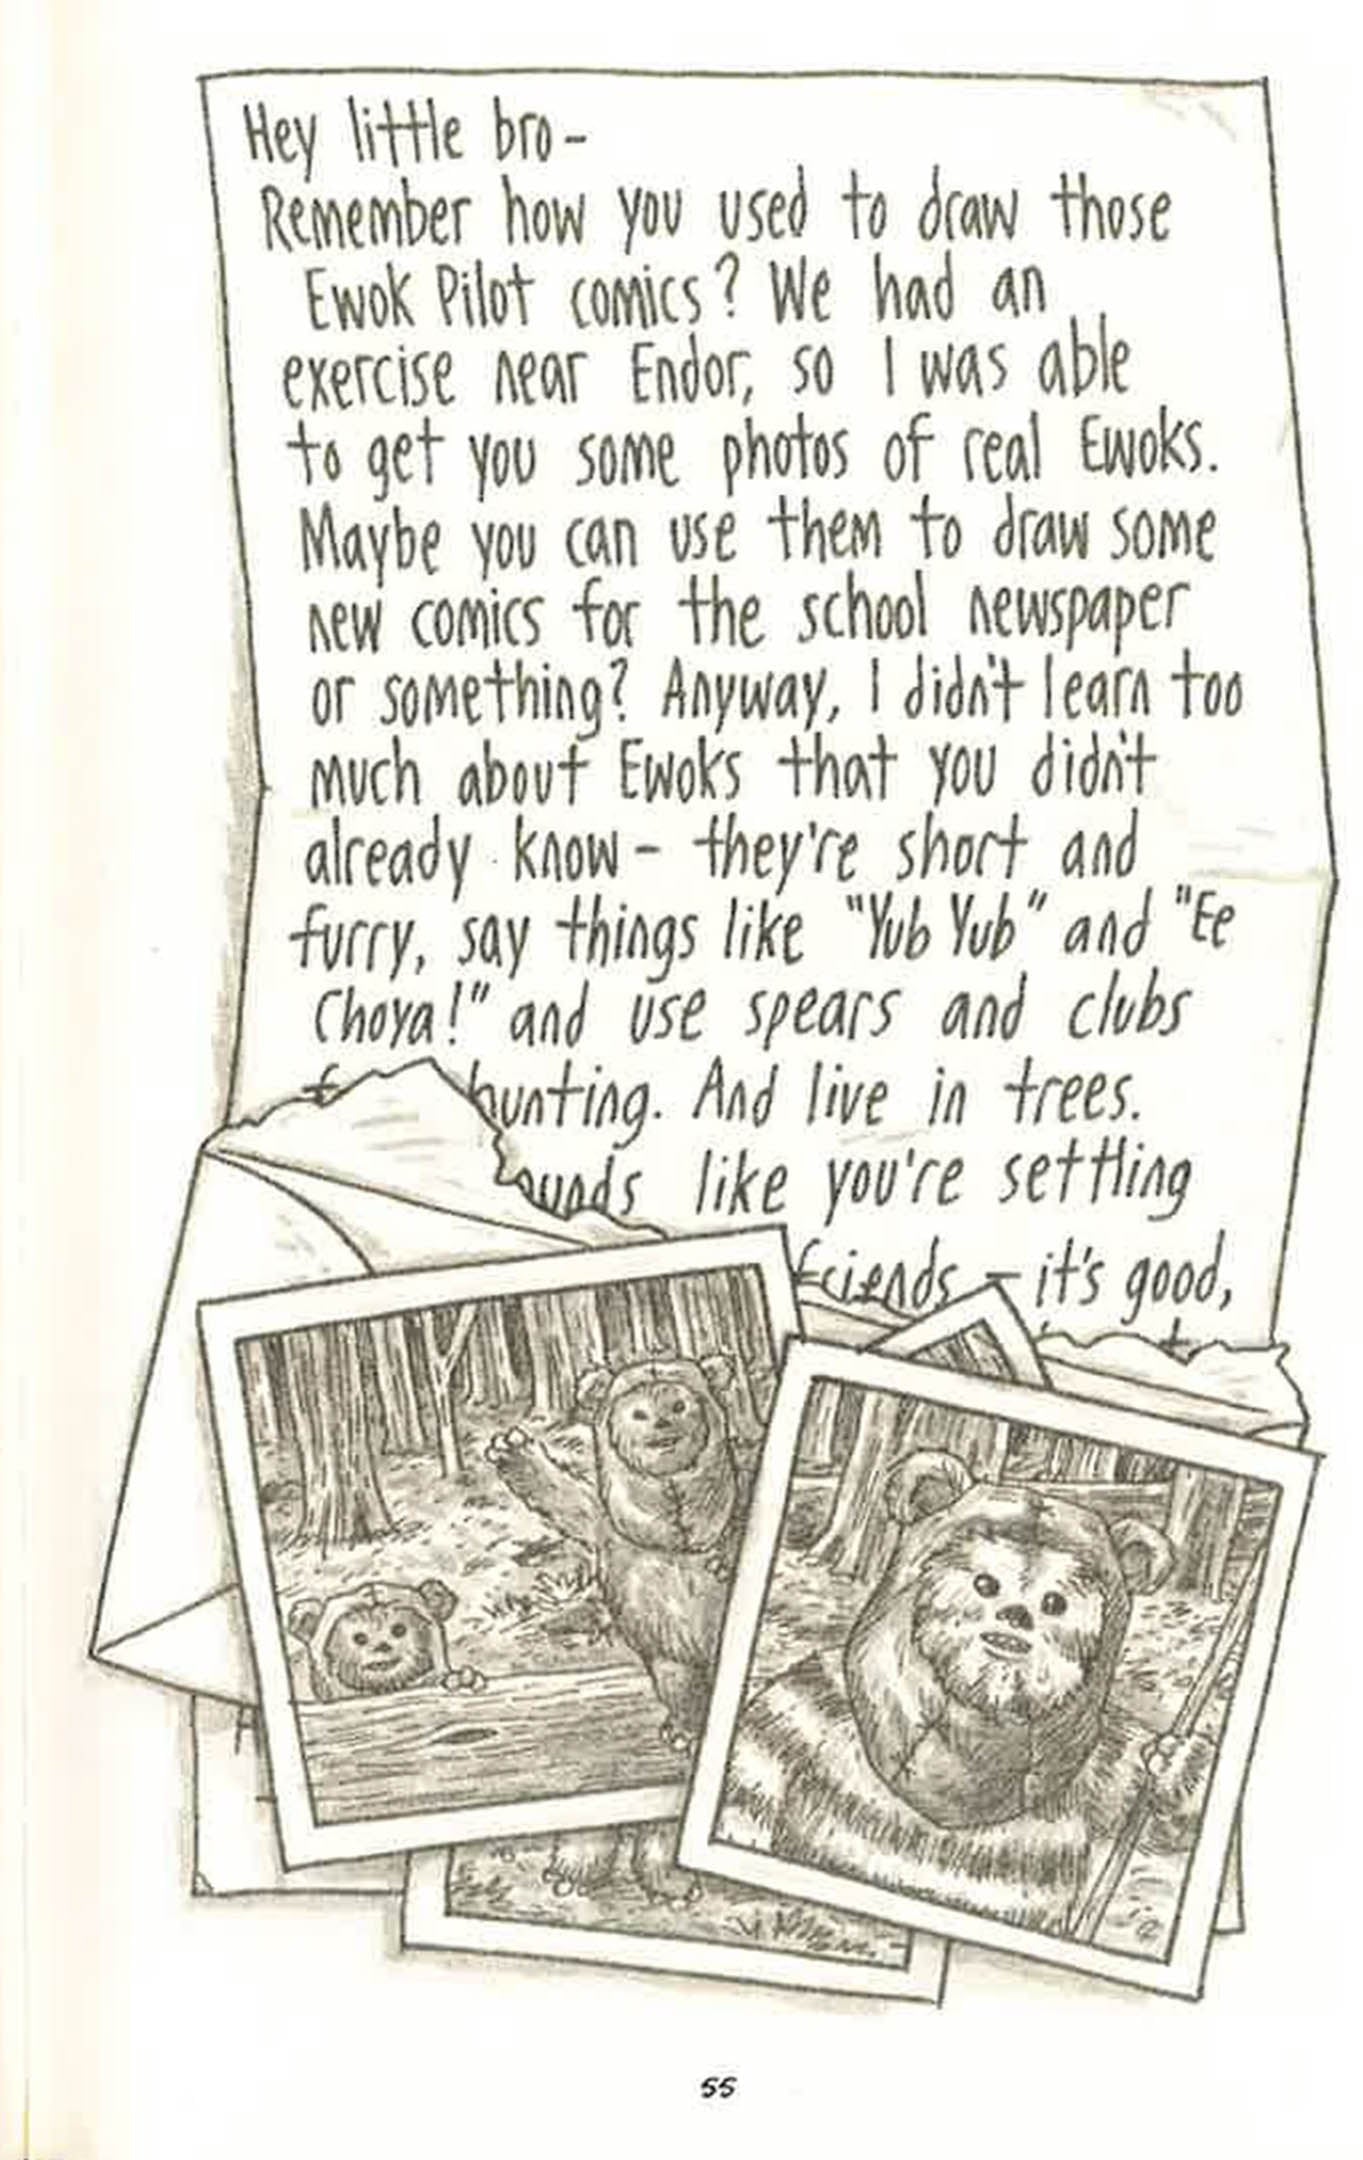 Hey little bro-
Remember how you used to draw those
Ewok Pilot comics? We had an
exercise near Endor, so I was able
to get you some photos of real Ewoks.
Maybe you can use them to draw some
new comics for the school newspaper
or something? Anyway, I didn't learn too
much about Ewoks that you didn't
already know- they're short and
furry, say things like "Yub Yub" and "Ee
Choya!" and use spears and clubs
hunting. And live in trees.
like you're settling
friends - it's good,
55